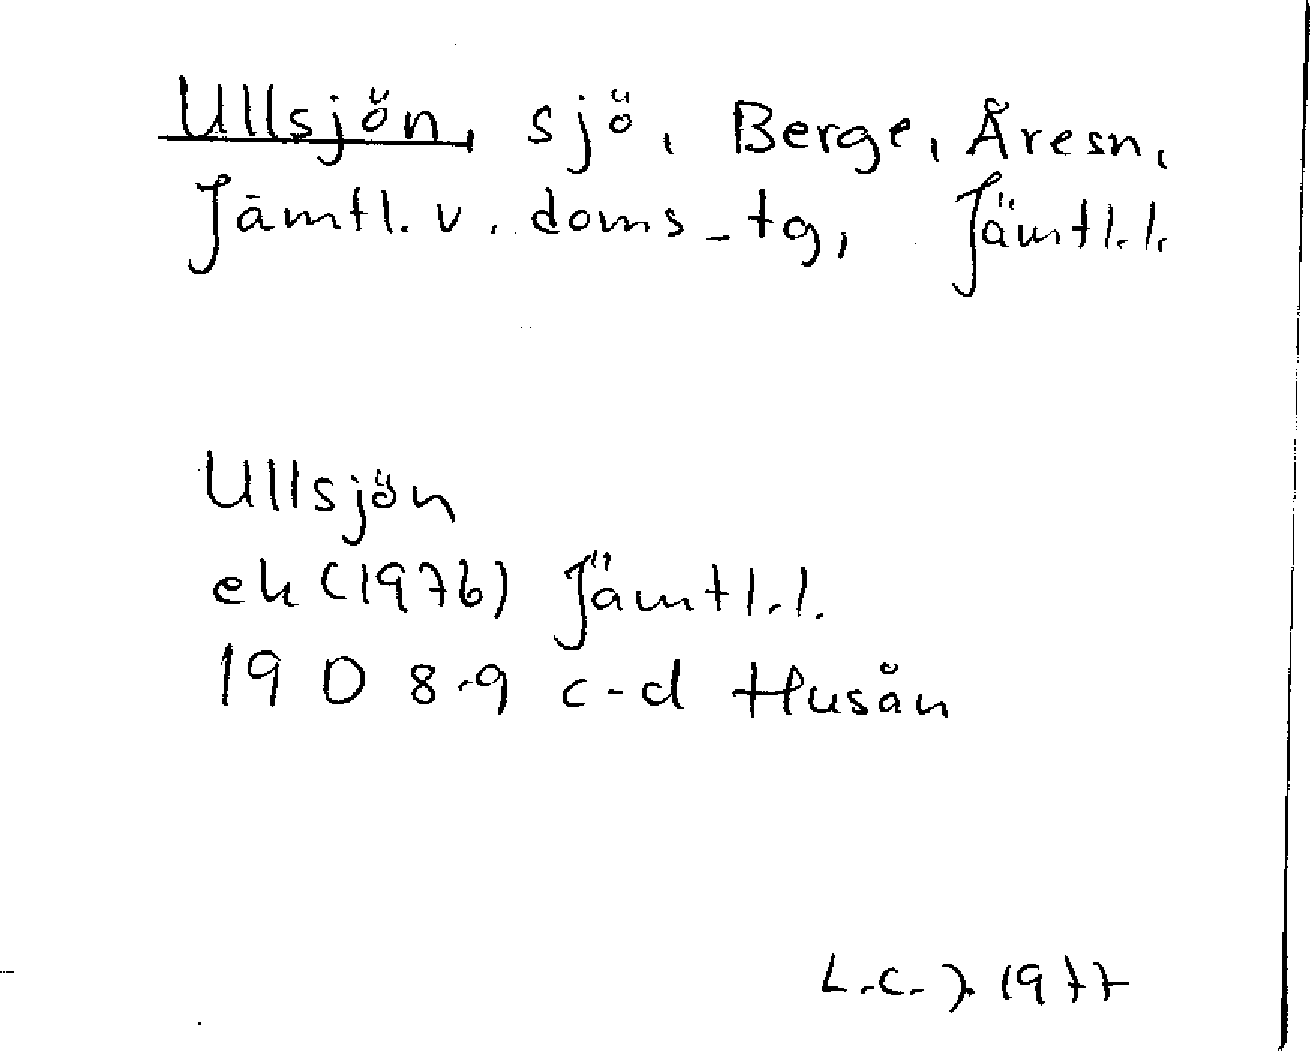 Ullsjön, sjö, Berge, Åresn,
Jämtl. v. doms-tg, Jämtl.l.
Ullsjön
ek (1976) Jämtl.l.
19 D 8-9 c-d Husån
L.C.J. 1977